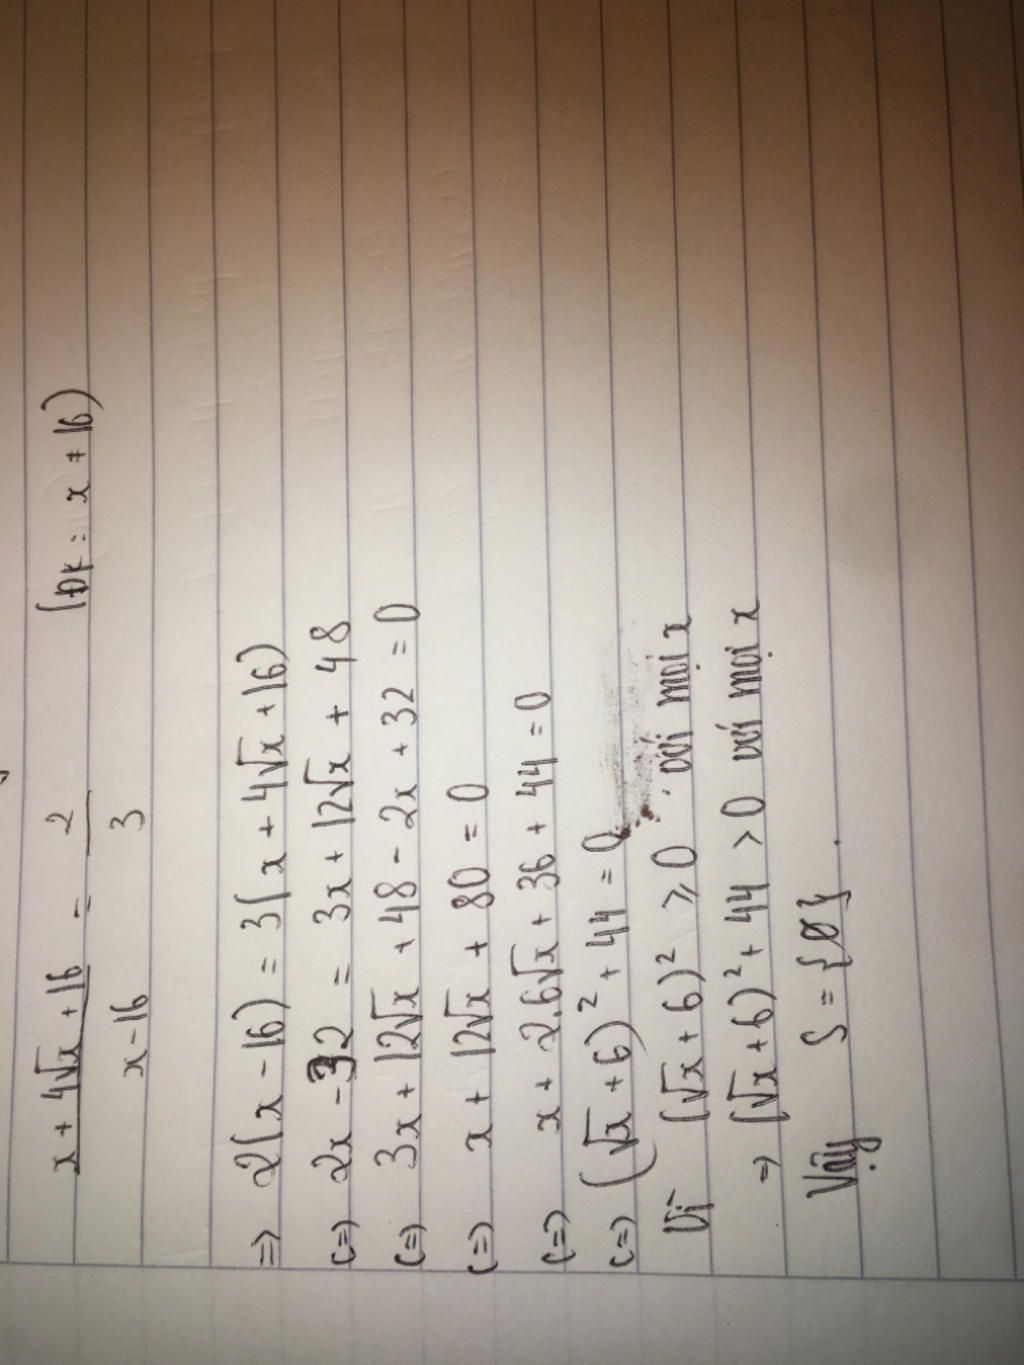 x + 4√x + 16 / x - 16 = 2 / 3 (ĐK: x ≠ 16)
=> 2(x - 16) = 3(x + 4√x + 16)
(=) 2x - 32 = 3x + 12√x + 48
(=) 3x + 12√x + 48 - 2x + 32 = 0
(=) x + 12√x + 80 = 0
(=) x + 2.6√x + 36 + 44 = 0
(=) (√x + 6)² + 44 = 0
Vì (√x + 6)² ≥ 0 với mọi x
=> (√x + 6)² + 44 > 0 với mọi x
Vậy S = {Ø}.